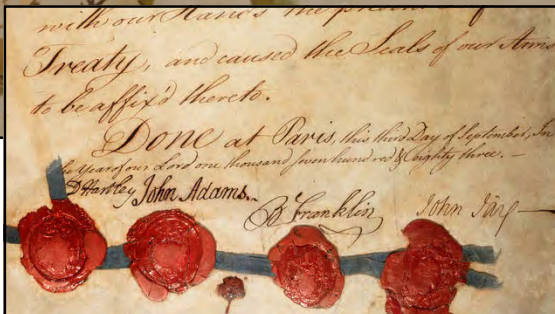 with our Hands the present
Treaty, and caused the Seals of our Arms
to be affix'd thereto.
DONE at Paris, this third Day of September, In
the Year of our Lord one thousand seven hundred & eighty three.—
D Hartley John Adams.. B Franklin John Jay—